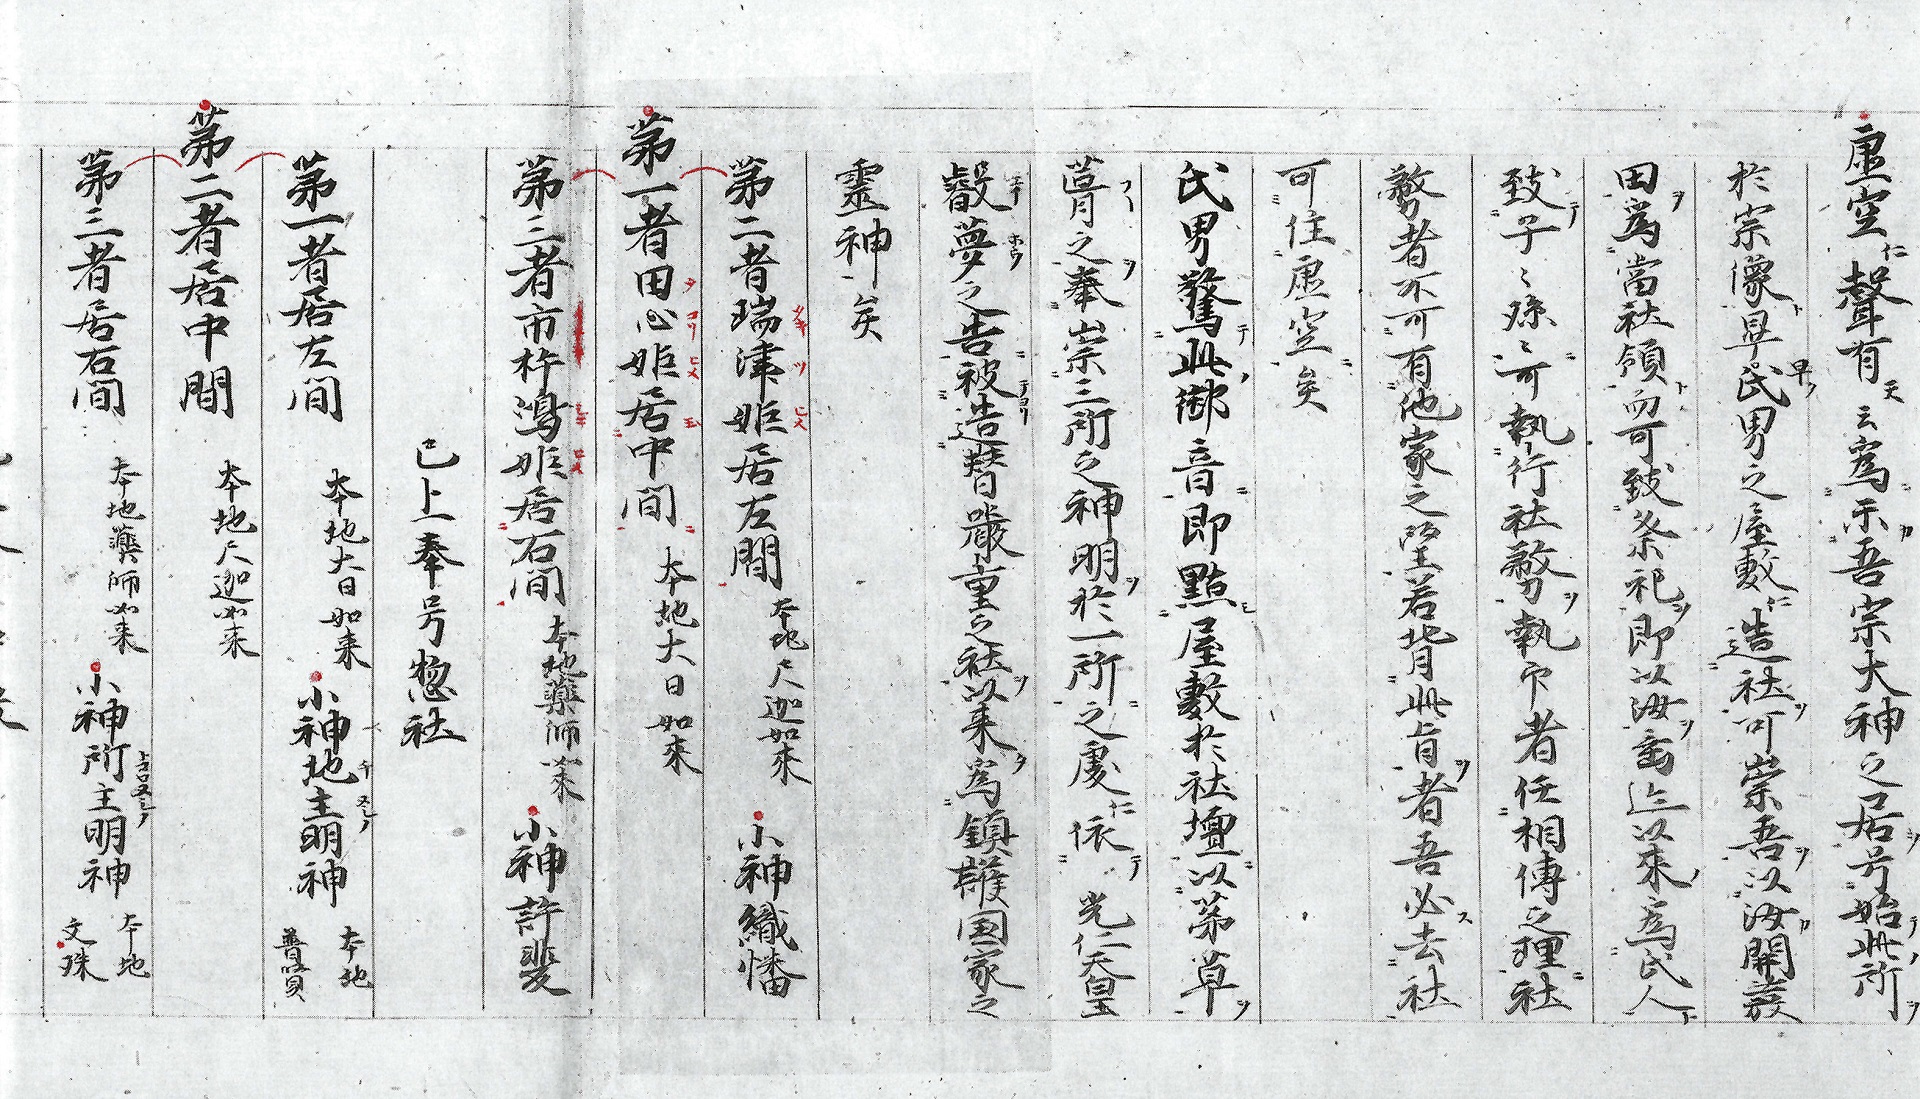 虚空仁聲有天云為示吾宗大神之居号始此所
於宗像早氏男之屋敷仁造社可崇吾以汝開發
田為當社領而可致祭祀即以汝垂迹以来為氏人
致子々孫々可執行社務執印者任相傳之理社
務者不可有他家之望若背此旨者吾必去社
可住虚空矣
氏男驚此御音即點屋敷於社壇以茅草
葺之奉崇三所之神明於一所之處仁依光仁天皇
叡夢之告被造替嚴重之社以来為鎮護国家之
靈神矣
第二者瑞津姫居左間 本地尺迦如来 小神織幡
第一者田心姫居中間 本地大日如来
第三者市杵嶋姫居右間 本地藥師如来 小神許斐
已上奉号惣社
第一者居左間 本地大日如来 小神地主明神 本地普賢
第二者居中間 本地尺迦如来
第三者居右間 本地藥師如来 小神所主明神 本地文珠